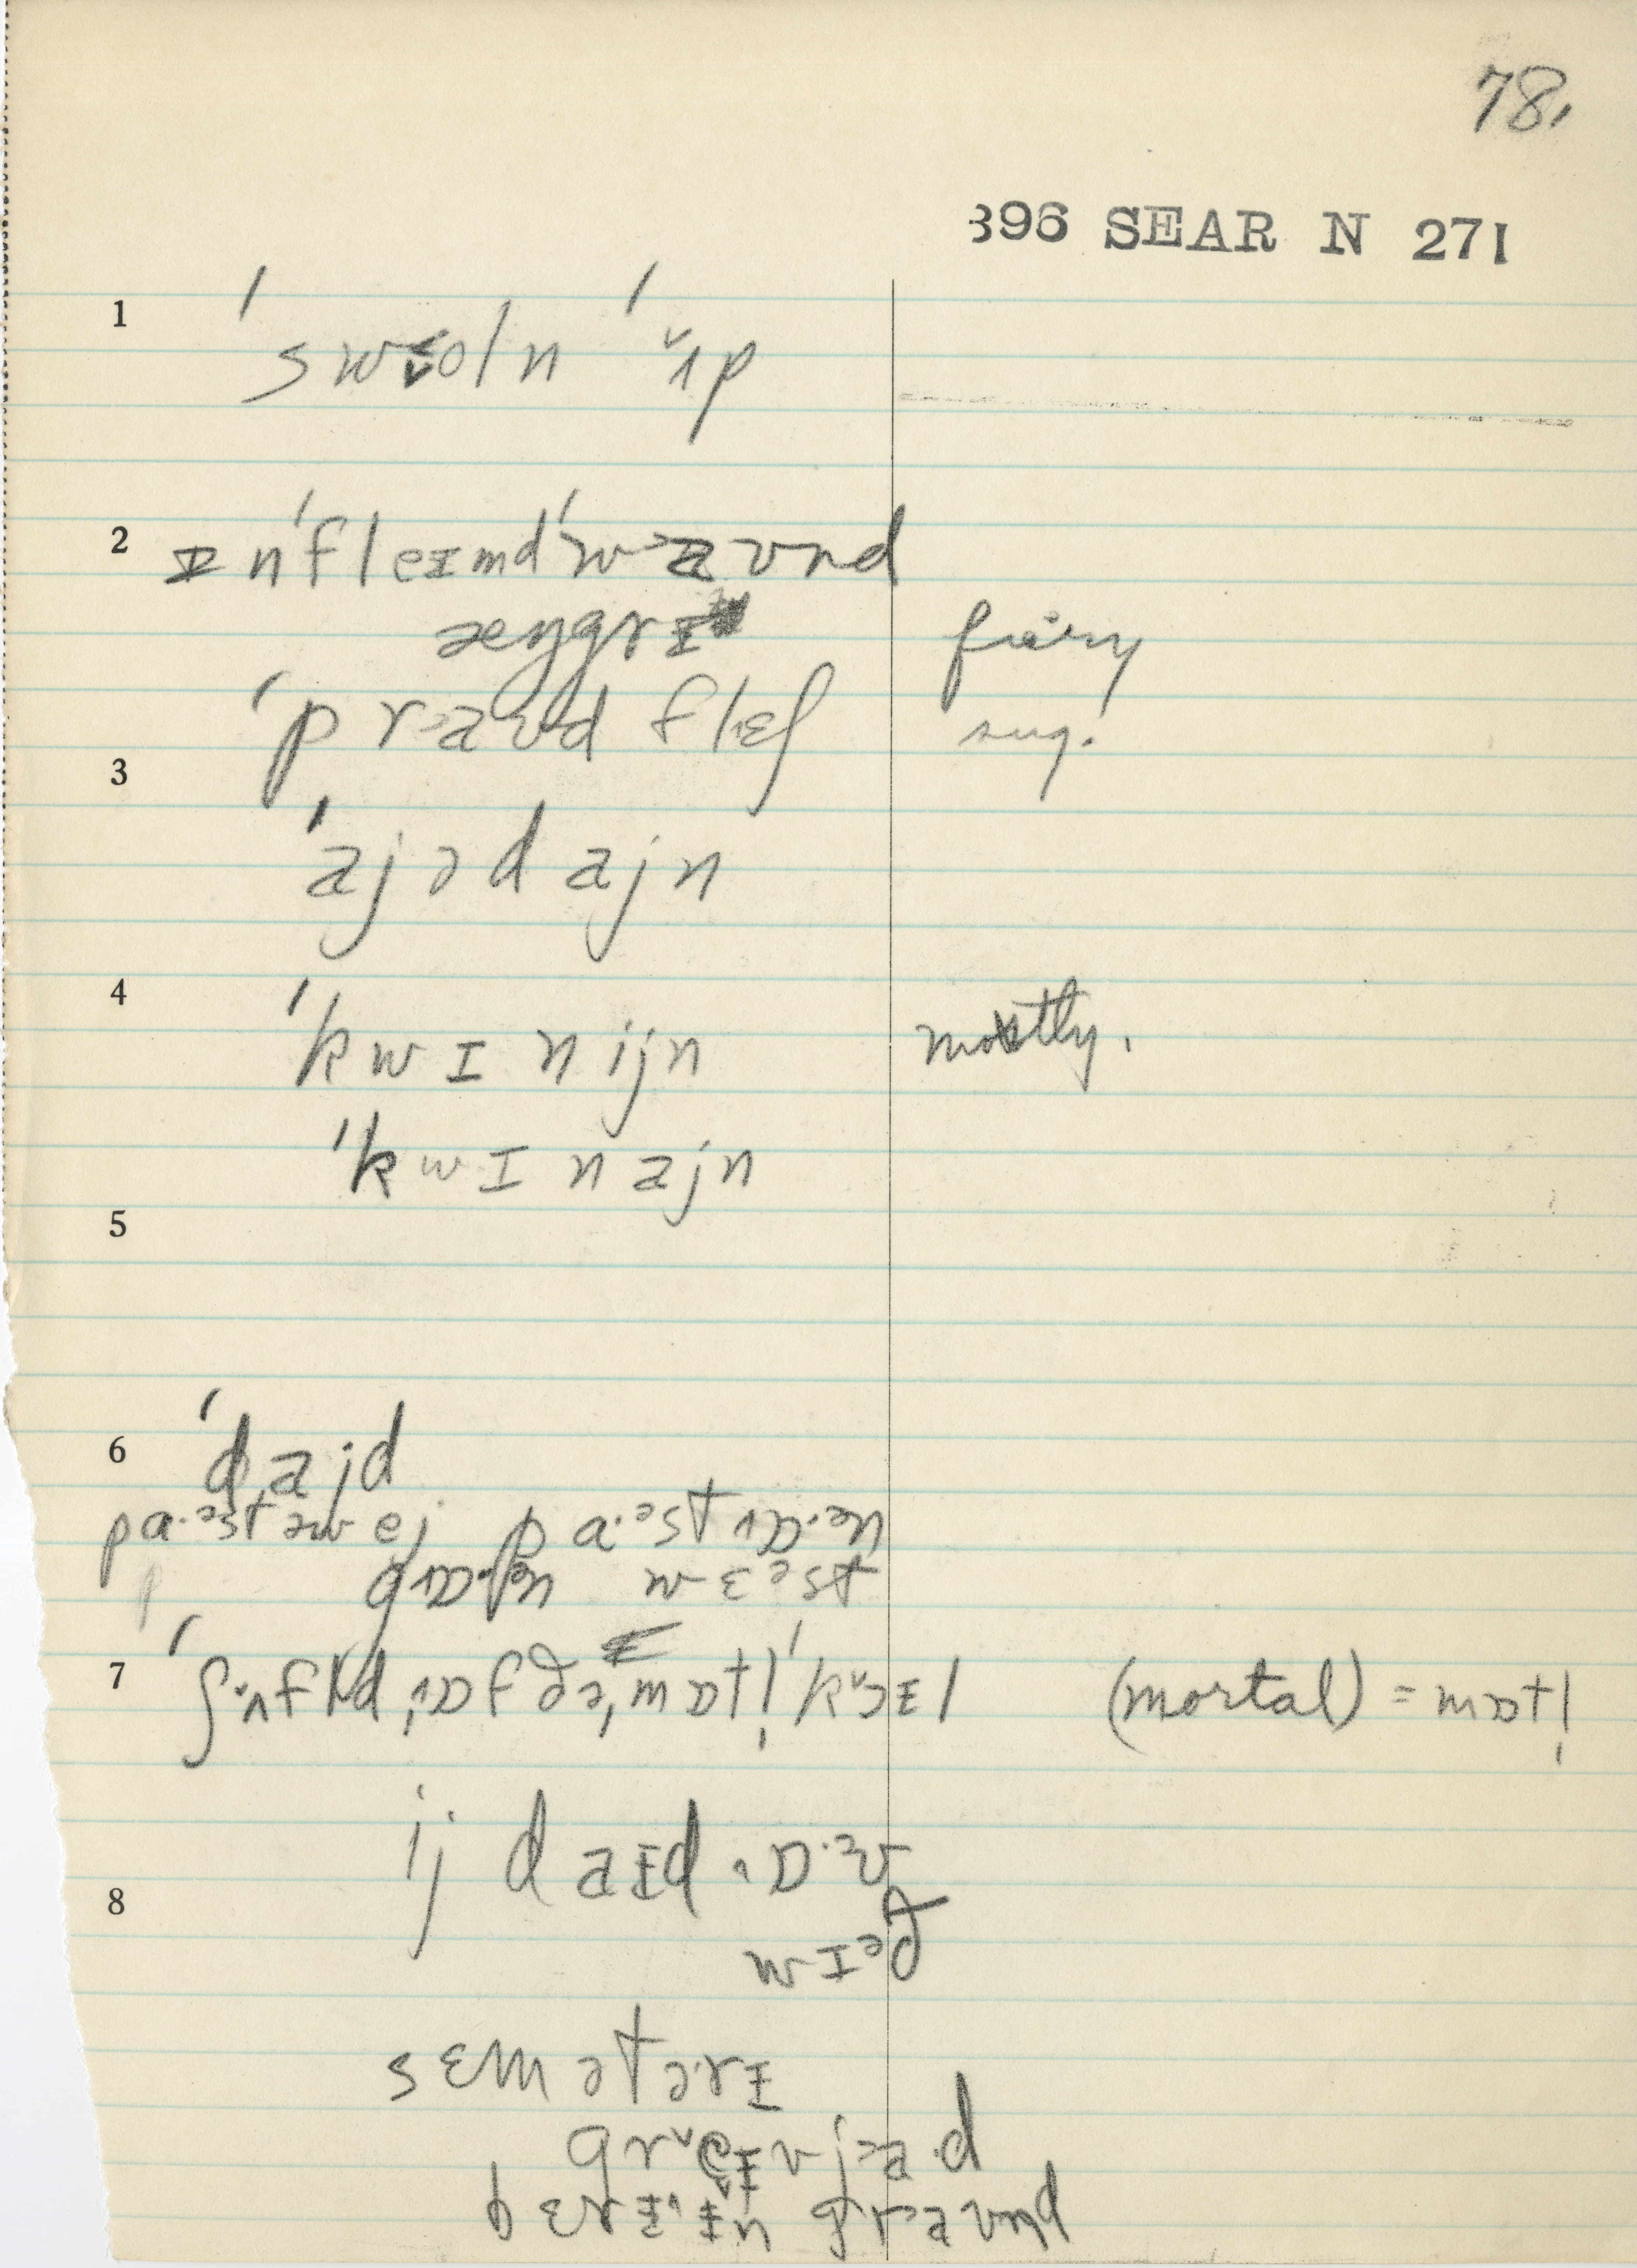 78.
396 SEAR N 271
1 ˈswoln ˈʌp
2 ɪnˈfleɪmd ˈwaʊnd
æŋgrɪ fiery
ˈpraʊd fleʃ sug.
3
ˈajədajn
4 ˈkwɪnijn mostly.
ˈkwɪnajn
5
6 ˈdajd
pa·əstəwej pa·əst ɒ·ən
gɒ·ən wɛəst
7 ˈʃʌfld ˌɒf ðəˌmɒtl̩ ˈkɔɪl (mortal) = mɒtl̩
ij daɪd ɒ·əv
8 wɪəð
sɛmətərɪ
greɪvjaəd
bɛrɪɪn graʊnd